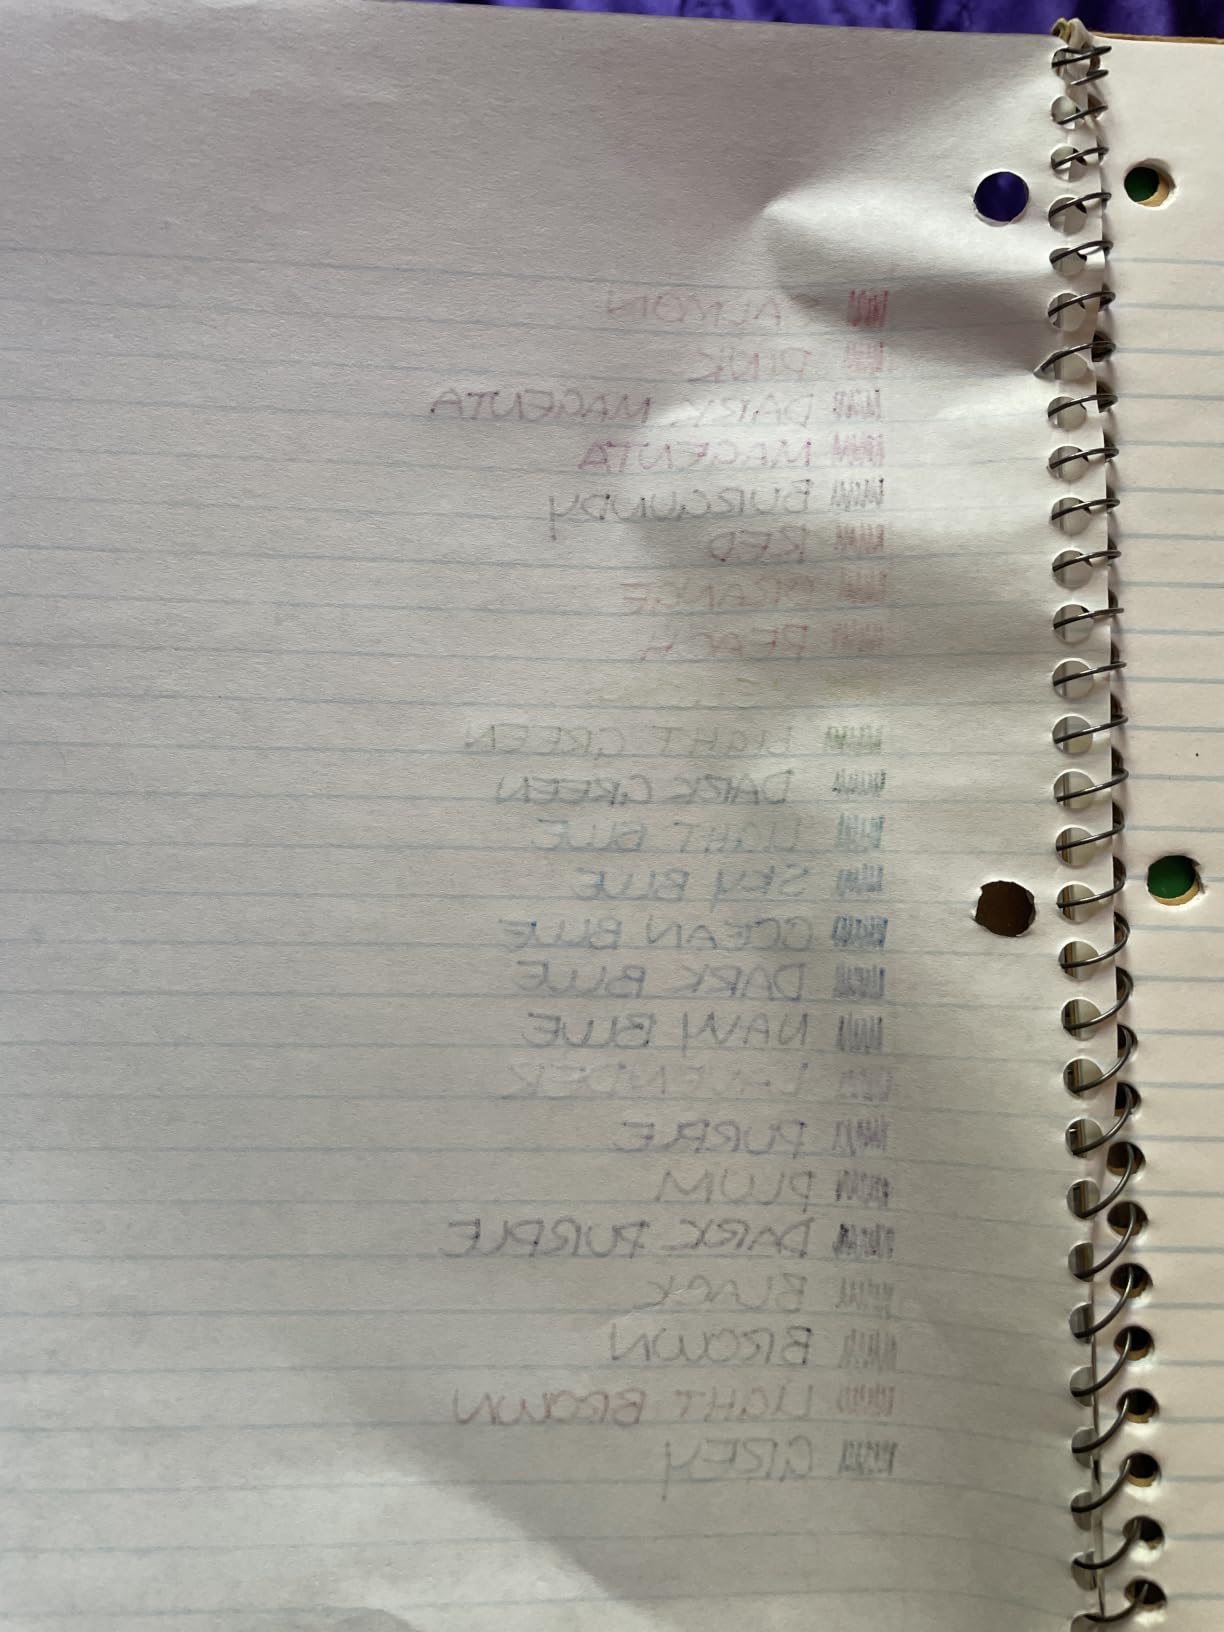 SALMON
PINK
DARK MAGENTA
MAGENTA
BURGUNDY
RED
ORANGE
PEACH
LIGHT GREEN
DARK GREEN
LIGHT BLUE
SKY BLUE
OCEAN BLUE
DARK BLUE
NAVY BLUE
LAVENDER
PURPLE
PLUM
DARK PURPLE
BLACK
BROWN
LIGHT BROWN
GREY